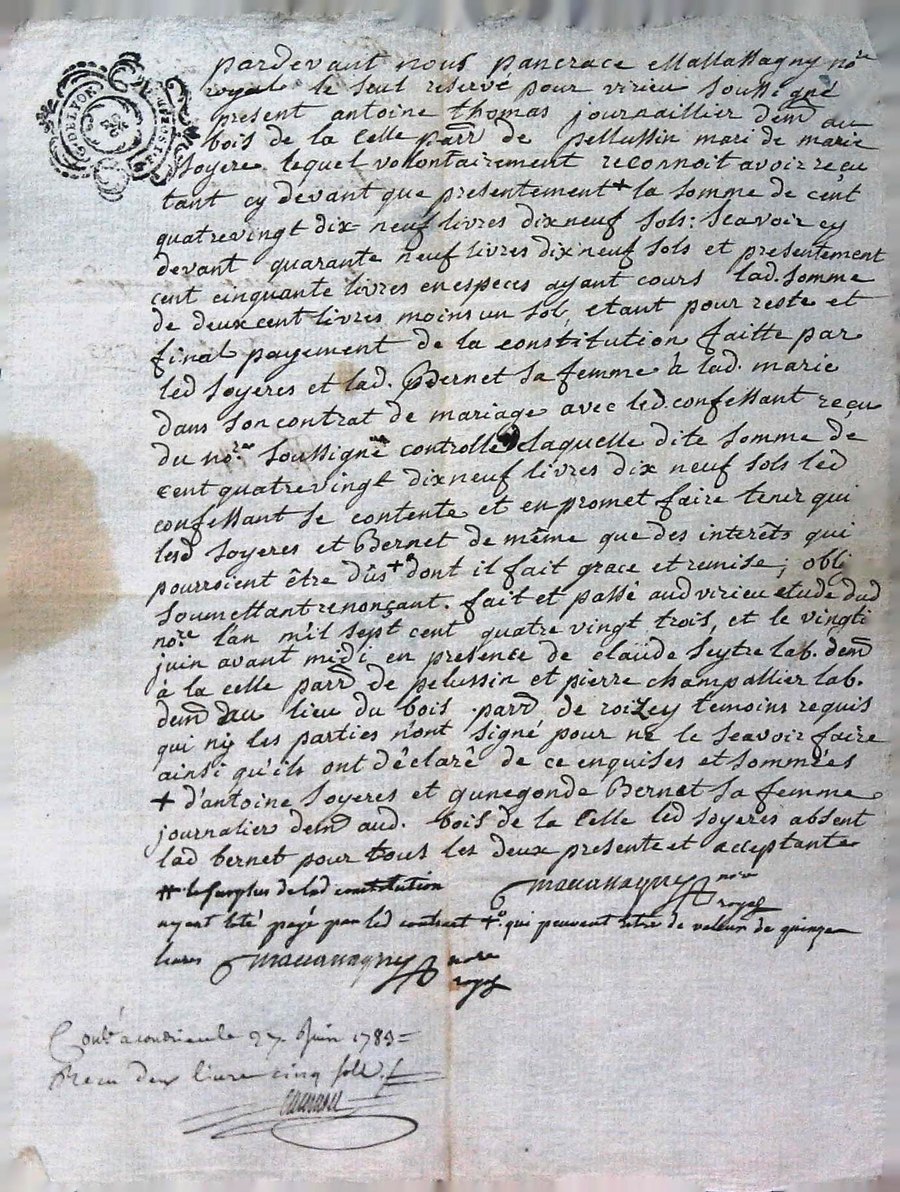 G. DE LYON
pardevant nous pancrace Mallassagny nore
royal le seul reservé pour virieu soussigné
present antoine thomas journaillier demt au
bois de la Celle parr de pellussin mari de marie
Soyere lequel volontairement reconnoit avoir recu
tant cy devant que presentement + la somme de cent
quatrevingt dix neuf livres dix neuf sols: scavoir cy
devant quarante neuf livres dix neuf sols et presentement
cent cinquante livres en especes ayant cours lad. somme
de deux cent livres moins un sol, etant pour reste et
final payement de la constitution faitte par
led Soyeres et lad. Bernet sa femme à lad. marie
dans son contrat de mariage avec led. confessant recu
du nore soussigné controllé laquelle dite somme de
cent quatrevingt dix neuf livres dix neuf sols led
confessant se contente et en promet faire tener qui
lesd Soyeres et Bernet de même que des interêts qui
pourroient être dûs + dont il fait grace et remise; obli
soumettant renonçant. fait et passé aud virieu etude dud
nore l'an mil sept cent quatre vingt trois, et le vingt
juin avant midi en presence de claude Seytre lab. demt
à la celle parr de pelussin et pierre champallier lab.
demt au lieu du bois parr de roizey temoins requis
qui ny les parties n'ont signé pour ne le scavoir faire
ainsi qu'ils ont déclaré de ce enquises et sommées
+ d'antoine Soyeres et gunegonde Bernet sa femme
journalier demt aud. bois de la Celle led Soyeres absent
lad bernet pour tous les deux presente et acceptante
# le surplus de lad constitution nore
royal
ayant été payé par led contract + qui peuvent etre de valeur de quinze
livres nore
royal
Conté à condrieu le 27 Juin 1783 =
Recu deux livre cinq sols